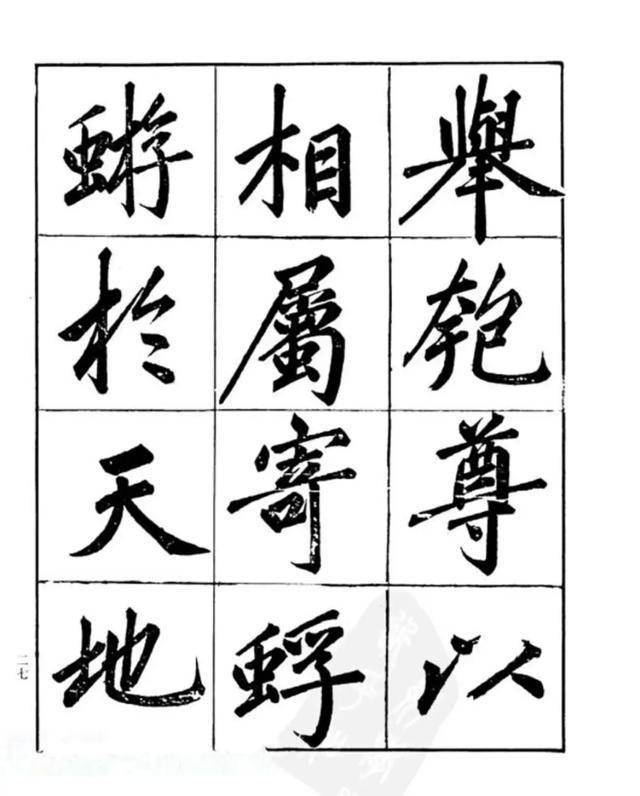 舉匏尊以
相屬寄蜉
蝣於天地
二七